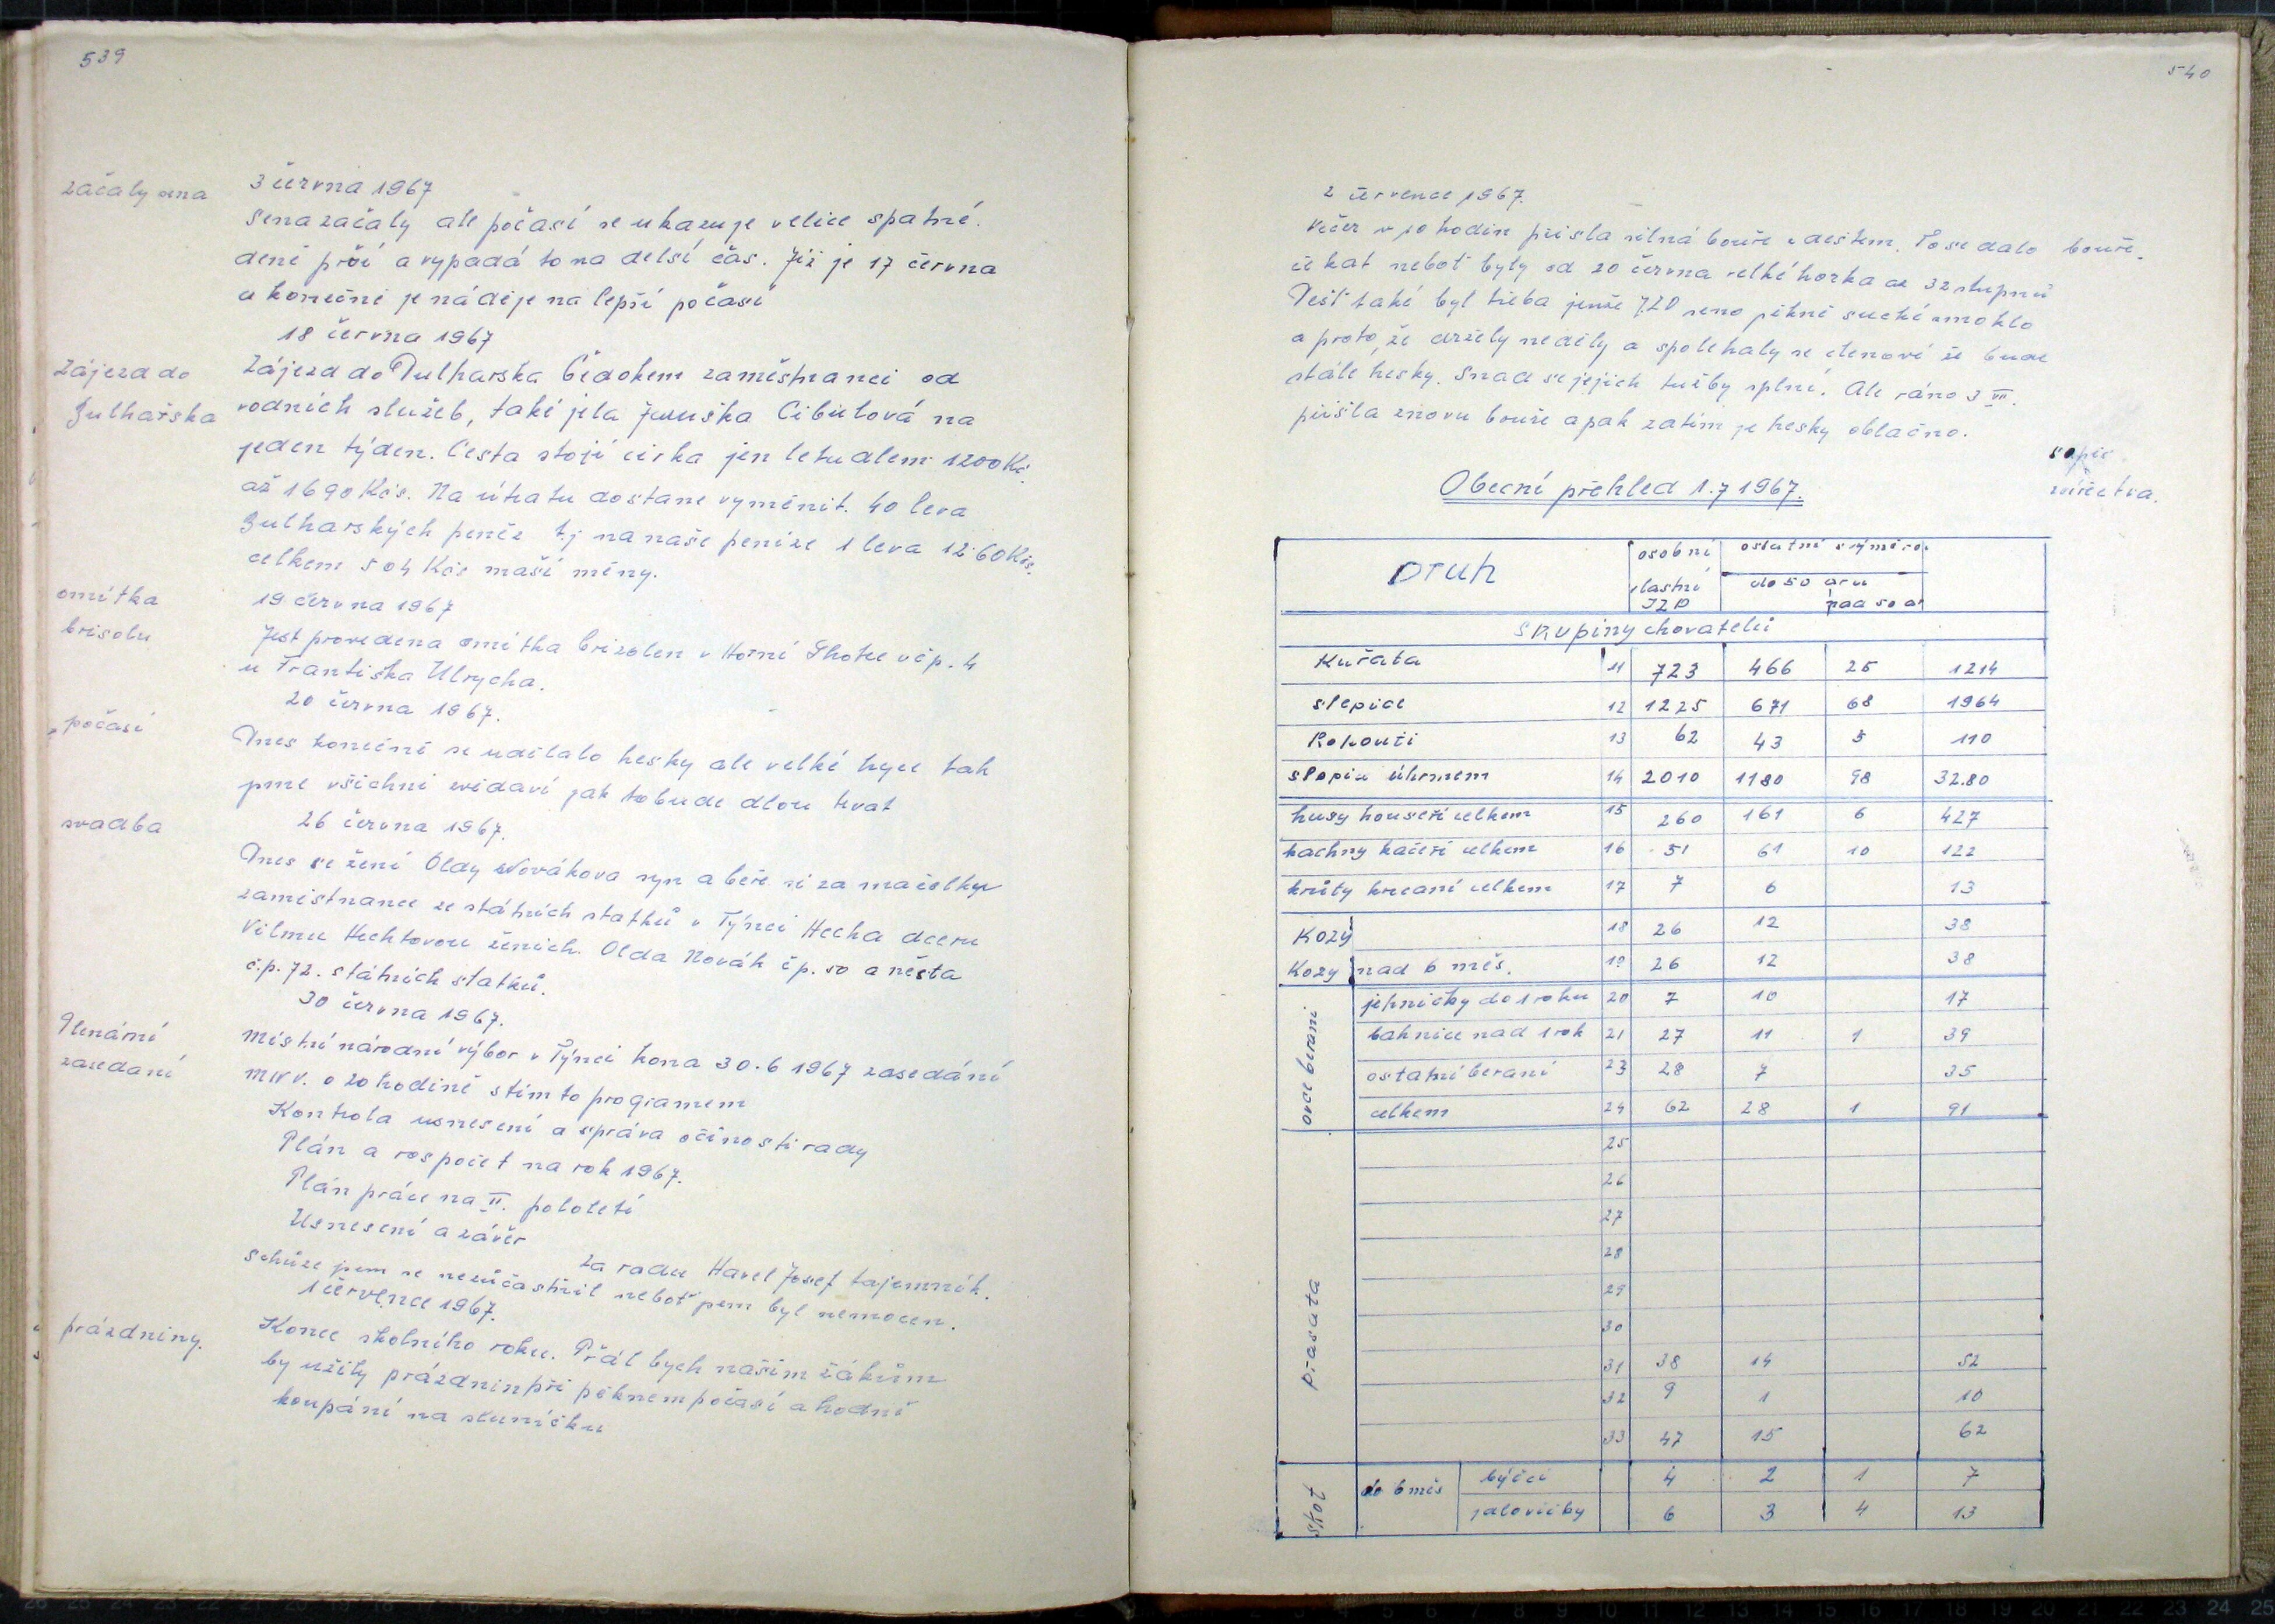 539
začaly sena
3 června 1967
Sena začaly ale počasí se ukazuje velice spatné.
deně prší a vypadá to na delsí čas. Již je 17 června
a konečně je náděje na lepší počasí
18 června 1967
Zájezd do
Bulharska
Zájezd do Bulharska Čedokem zaměstnanci od
vodních služeb, také jela Cibulová na
jeden týden. Cesta stojí cirka jen letadlem 1200 Kč.
až 1690 Kčs. Na útratu dostane vyměnit. 40 leva
Bulharských peněz tj na naše peníze 1 leva 12.60 Kčs.
celkem 504 Kčs naší měny.
omítka
brisolu
19 června 1967
Jest provedena omítka brizolen v Horní Lhotce v čp. 4
u Františka Ulrycha.
20 června 1967.
počasí
Dnes konečně se udělalo hesky ale velké hyce tak
jsme všichni zvidaví jak to bude dlou trvat
26 června 1967.
svadba
Dnes se žení Oldy Novákova syn a beře si za mačelkyu
zamistnance ze státních statků v Týnci Hecha dceru
Vilmu Hechtovou ženich. Olda Novák čp. 50 a něsta
č.p. 72. státních statků.
30 června 1967.
Plenární
zasedaní
Místní národní výbor v Týnci kona 30.6 1967 zasedání
MNV. o 20 hodině stím to programem
Kontrola usnesení a správa o činosti rady
Plán a rospočet na rok 1967.
Plán práce na II. pololetí
Usnesení a závěr
za radu Havel Josef tajemník.
schůze jsem se nezúčastnil neboť jsem byl nemocen.
1 července 1967.
prázdniny.
Konec skolního roku. Přál bych našim žákům
by užily prázdnin při pěknem počasí a hodně
koupání na sluníčku
540
2 července 1967.
Večer v 10 hodin přisla silná bouře z deštem. To se dalo
bouře.
če kat neboť byly od 20 června velké horka až 32 stupnů
Déšť také byl třeba jenže JZD seno pěkně suché zmoklo
a proto, že držely neděly a spolehaly se členové že bude
stále hesky. Snad se jejich tužby splní. Ale ráno 3 VII.
přišla znovu bouře a pak zatím je hesky oblačno.
sopis
zvířectva.
Obecní přehled 1.7 1967.
Druh osobní vlastní JZD ostatní s výměrou do 50 aru nad 50 ar
Skupiny chovatelů
Kuřata 11 723 466 25 1214
slepice 12 1225 671 68 1964
Kohouti 13 62 43 5 110
slepic úhrnem 14 2010 1180 98 32.80
husy houseři celkem 15 260 161 6 427
kachny kačeři celkem 16 51 61 10 122
krůty krocani celkem 17 7 6 13
Kozy 18 26 12 38
Kozy nad 6 měs. 19 26 12 38
ovce berani
jehničky do 1 roku 20 7 10 17
bahnice nad 1 rok 21 27 11 1 39
ostatní beraní 23 28 7 35
celkem 24 62 28 1 91
Prasata
25
26
27
28
29
30
31 38 14 52
32 9 1 10
33 47 15 62
skot
do 6 měs býčci 4 2 1 7
jalovičky 6 3 4 13